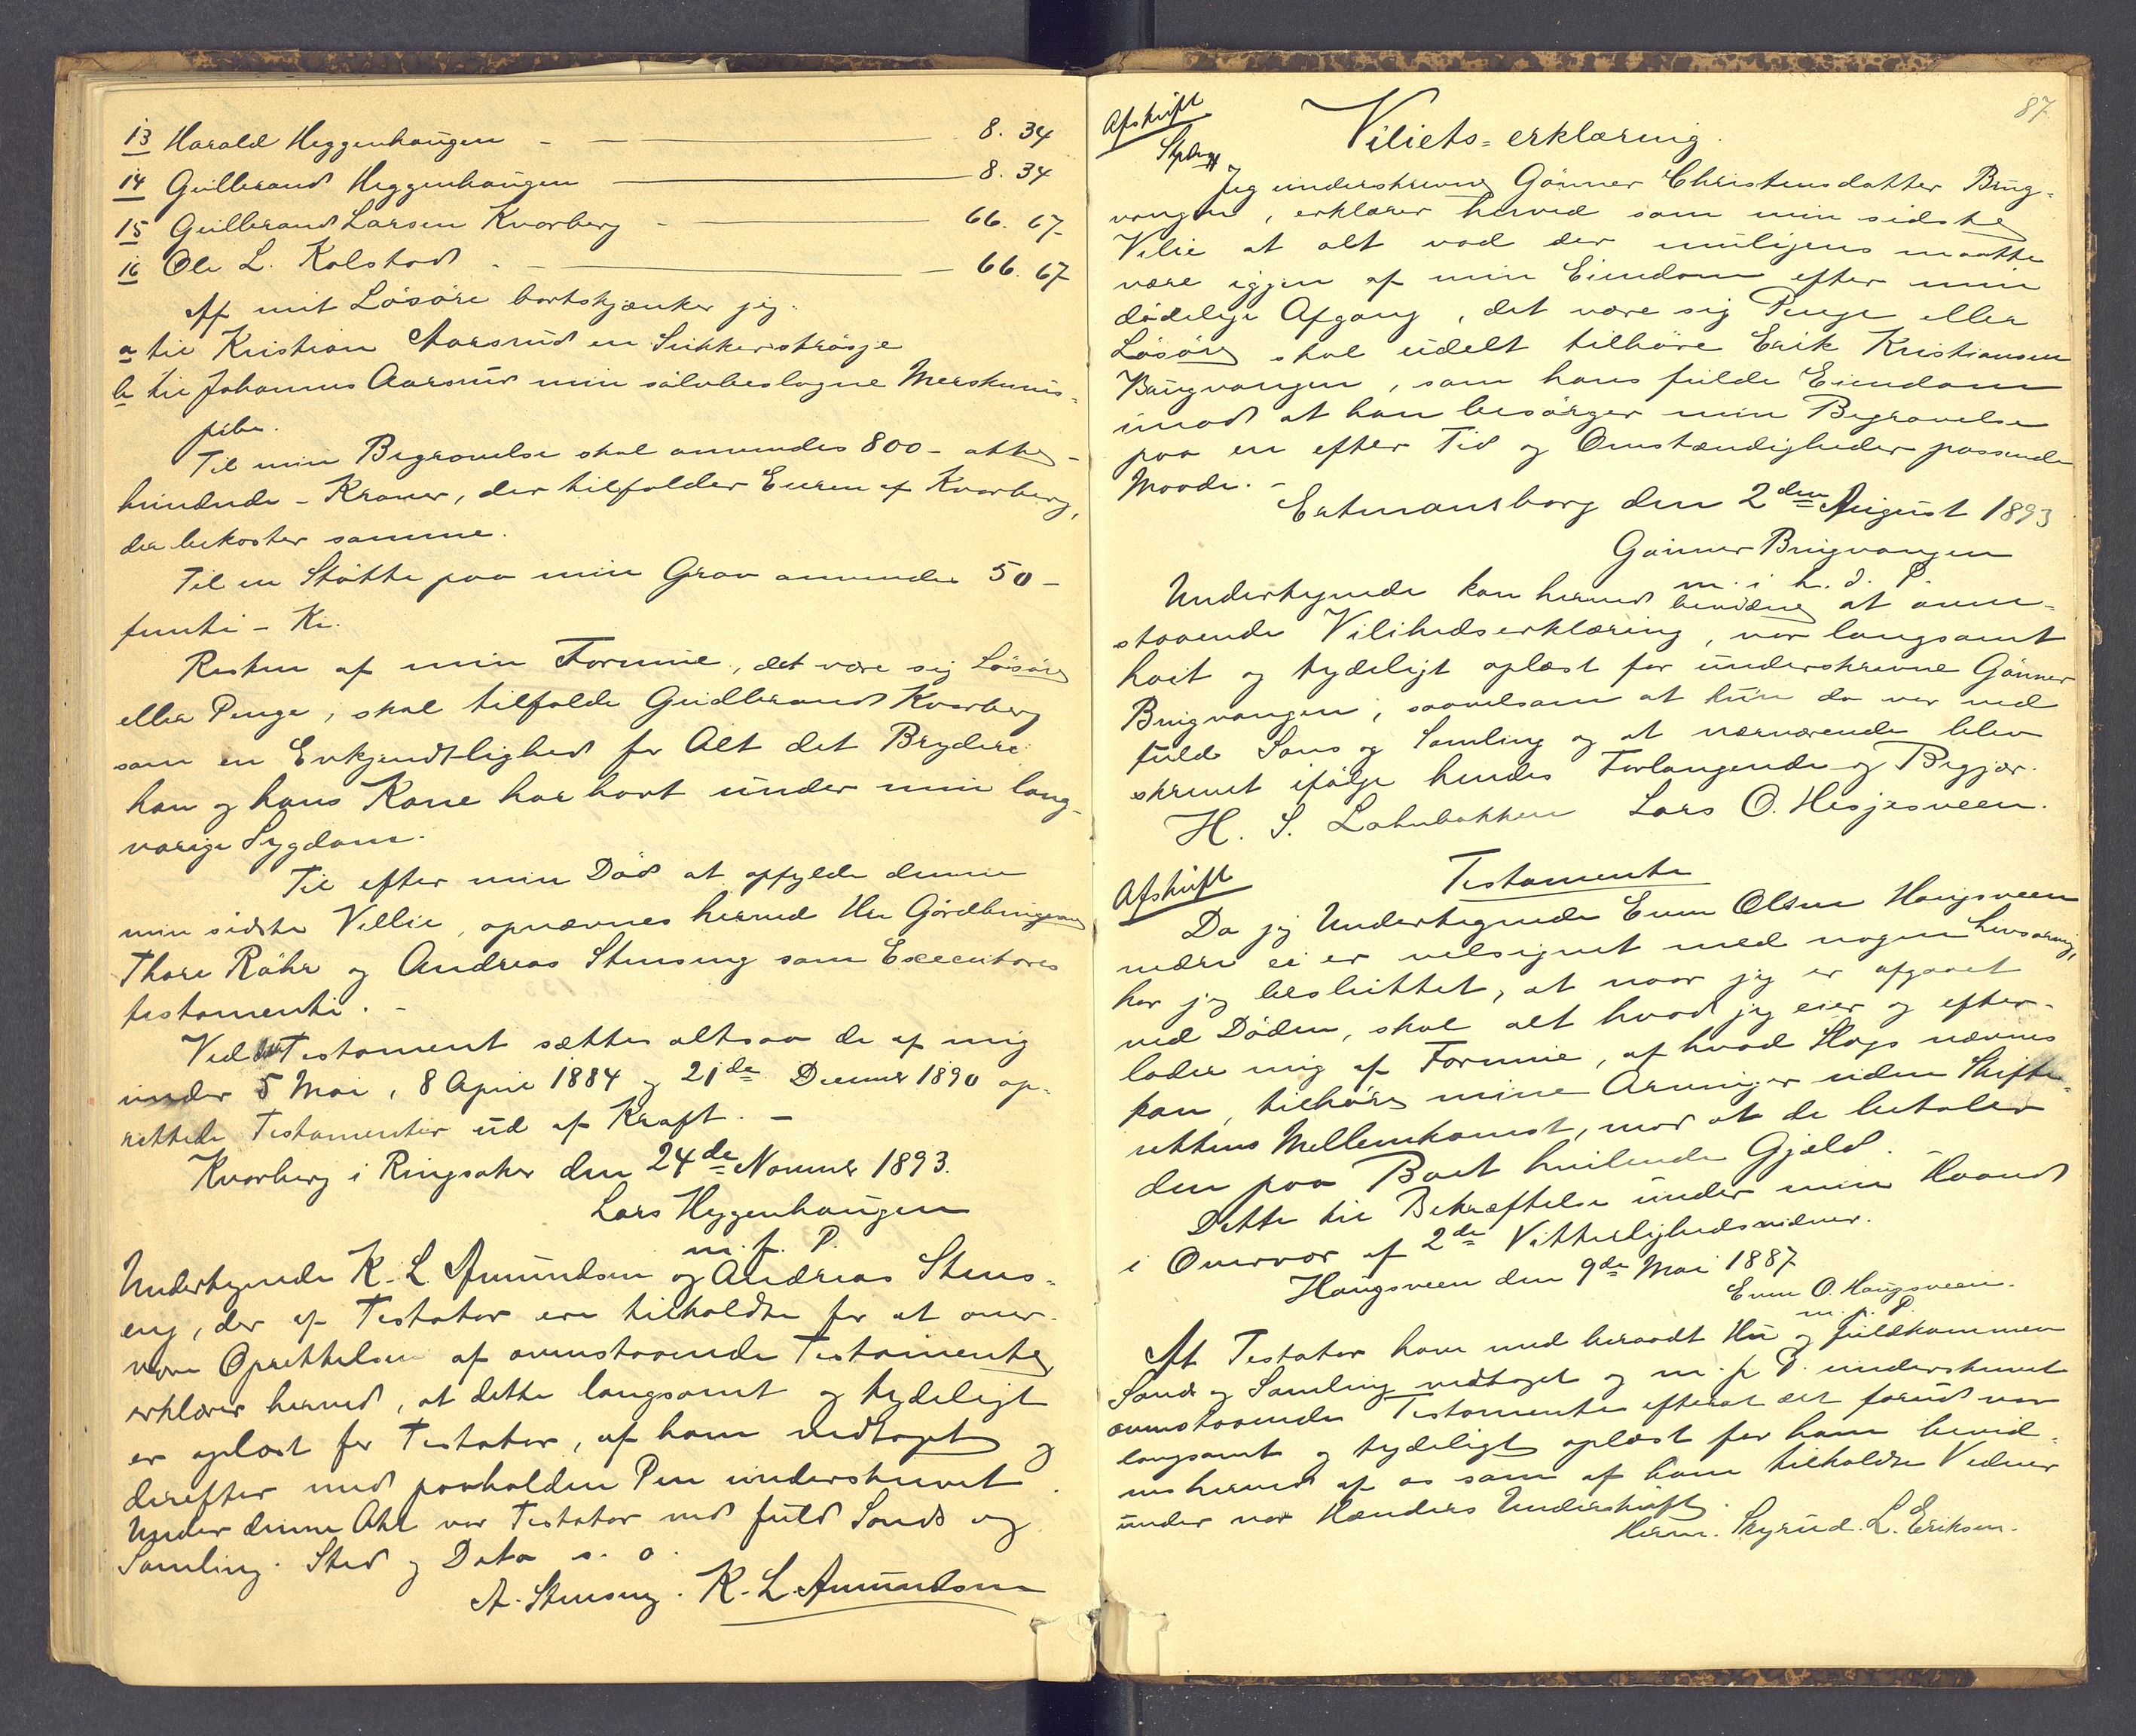 13 Harald Heggenhaugen - — 8. 34
14 Gulbrand Heggenhaugen — 8. 34
15 Gulbrand Larsen Kvarberg - — 66. 67
16 Ole L. Kolstad - — 66. 67
Af mit Løsøre bortskjænker jeg.
a til Kristian Aarsrud en Sukkerstrøsje
b til Johannes Aarsrud min sølvbeslagne Merskums-
pibe.
Til min Begravelse skal anvendes 800 - otte-
hundrede - Kroner, der tilfalder Eieren af Kvarberg,
der bekoster samme.
Til en Støtte paa min Grav anvendes 50 -
femti - Kr.
Resten af min Formue, det være sig Løsøre
eller Penge, skal tilfalde Gudbrand Kvarberg
som en Erkjendtlighed for Alt det Bryderi
han og hans Kone har havt under min lang-
varige Sygdom.
Til efter min Død at opfylde denne
min sidste Villie, opnævnes herved Hr
Thore Röhr og Andreas Stenseng som Executores
testamenti. -
Ved dette Testament sættes altsaa de af mig
under 5 Mai, 8 April 1884 og 21de Decemb 1890 op-
rettede Testamenter ud af Kraft. -
Kvarberg i Ringsaker den 24de Novemb 1893.
Lars Heggenhaugen
m. p. P.
Undertegnede K. L. Amundsen og Andreas Stens-
eng, der af Testator ere tilkaldte for at over-
være Oprettelsen af ovenstaaende Testamente
erklærer herved, at dette langsomt og tydeligt
er oplæst for Testator, af ham vedtaget og
derefter med paaholden Pen underskrevet.
Under denne Akt var Testator ved fuld Sands og
Samling. Sted og Dato s. o.
A. Stenseng. K. L. Amundsen
87
Afskrift
Viliets-erklæring.
Jeg underskrevne Gønner Christensdatter Brug-
vangen, erklærer herved som min sidste
Vilie at alt vad der muligens maatte
være igjen af min Eiendom efter min
dødelige Afgang, det være sig Penge eller
Løsøre skal udelt tilhøre Erik Kristiansen
Brugvangen, som hans fulde Eiendom
imod at han besørger min Begravelse
paa en efter Tid og Omstændigheder passende
Maade. -
den 2den August 1893
Gønner Brugvangen
m. i h. d. P.
Undertegnede kan herved bevidne at oven-
staaende Vilihedserklæring, var langsomt
høit og tydeligt oplæst for underskrevne Gønner
Brugvangen, saavelsom at hun da var ved
fuld Sans og Samling og at nærværende blev
skrevet ifølge hendes Forlangende og Begjær.
H. S. Lohnbakken Lars O. Hesjesveen.
Afskrift
Testamente
Da jeg Undertegnede Even Olsen Haugsveen
ei er velsignet med nogen Livsarving,
har jeg besluttet, at naar jeg er afgaaet
ved Døden, skal alt hvad jeg eier og efter-
lader mig af Formue, af hvad Slags nævnes
kan, tilhøre mine Arvinger uden Skifte-
rettens Mellemkomst, mod at de betaler
den paa Boet hvilende Gjæld.
Dette til Bekræftelse under min Haand
i Overvær af 2de Vitterlighedsvidner.
Haugsveen den 9de Mai 1887
Even O. Haugsveen.
m. p. P.
At Testator have med beraadt Hu og fuldkommen
Sands og Samling vedtaget og m. p. P. underskrevet
ovenstaaende Testamente efterat det forud var
langsomt og tydeligt oplæst for ham bevid-
nes herved af os som af ham tilkaldte Vidner
under vor Hænders Underskrift.
Herm. Skyrud. L. Eriksen.